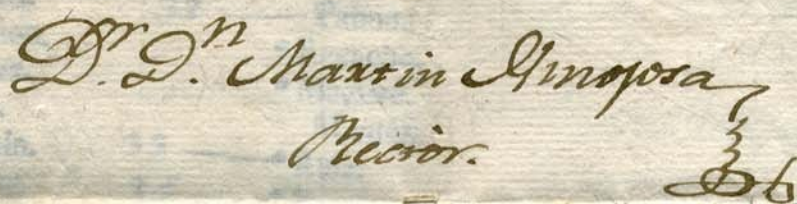 Dr. Dn. Martin Hinojosa
Rector.